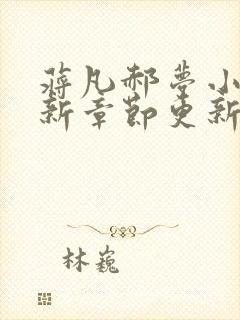 蒋凡郝梦小
新章节更新
林巍